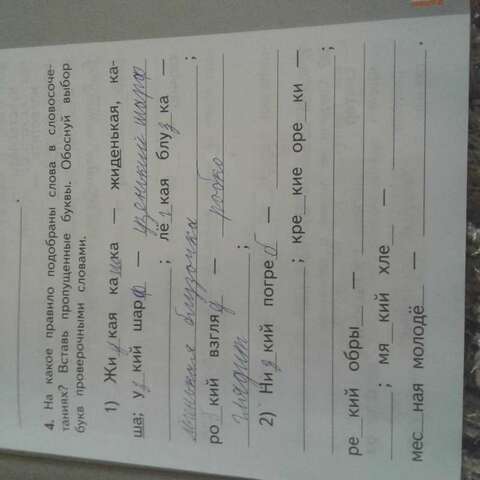 4. На какое правило подобраны слова в словосоче-
таниях? Вставь пропущенные буквы. Обоснуй выбор
букв проверочными словами.
1) Жидкая кашка — жиденькая, ка-
ша; узкий шарф — узенький шарф
; лёгкая блузка —
блузочка ;
робкий взгляд — робко
глядит ;
2) Низкий погреб —
; кре__кие оре__ки —
;
ре__кий обры__ —
; мя__кий хле__ —
мес__ная молодё__ — .